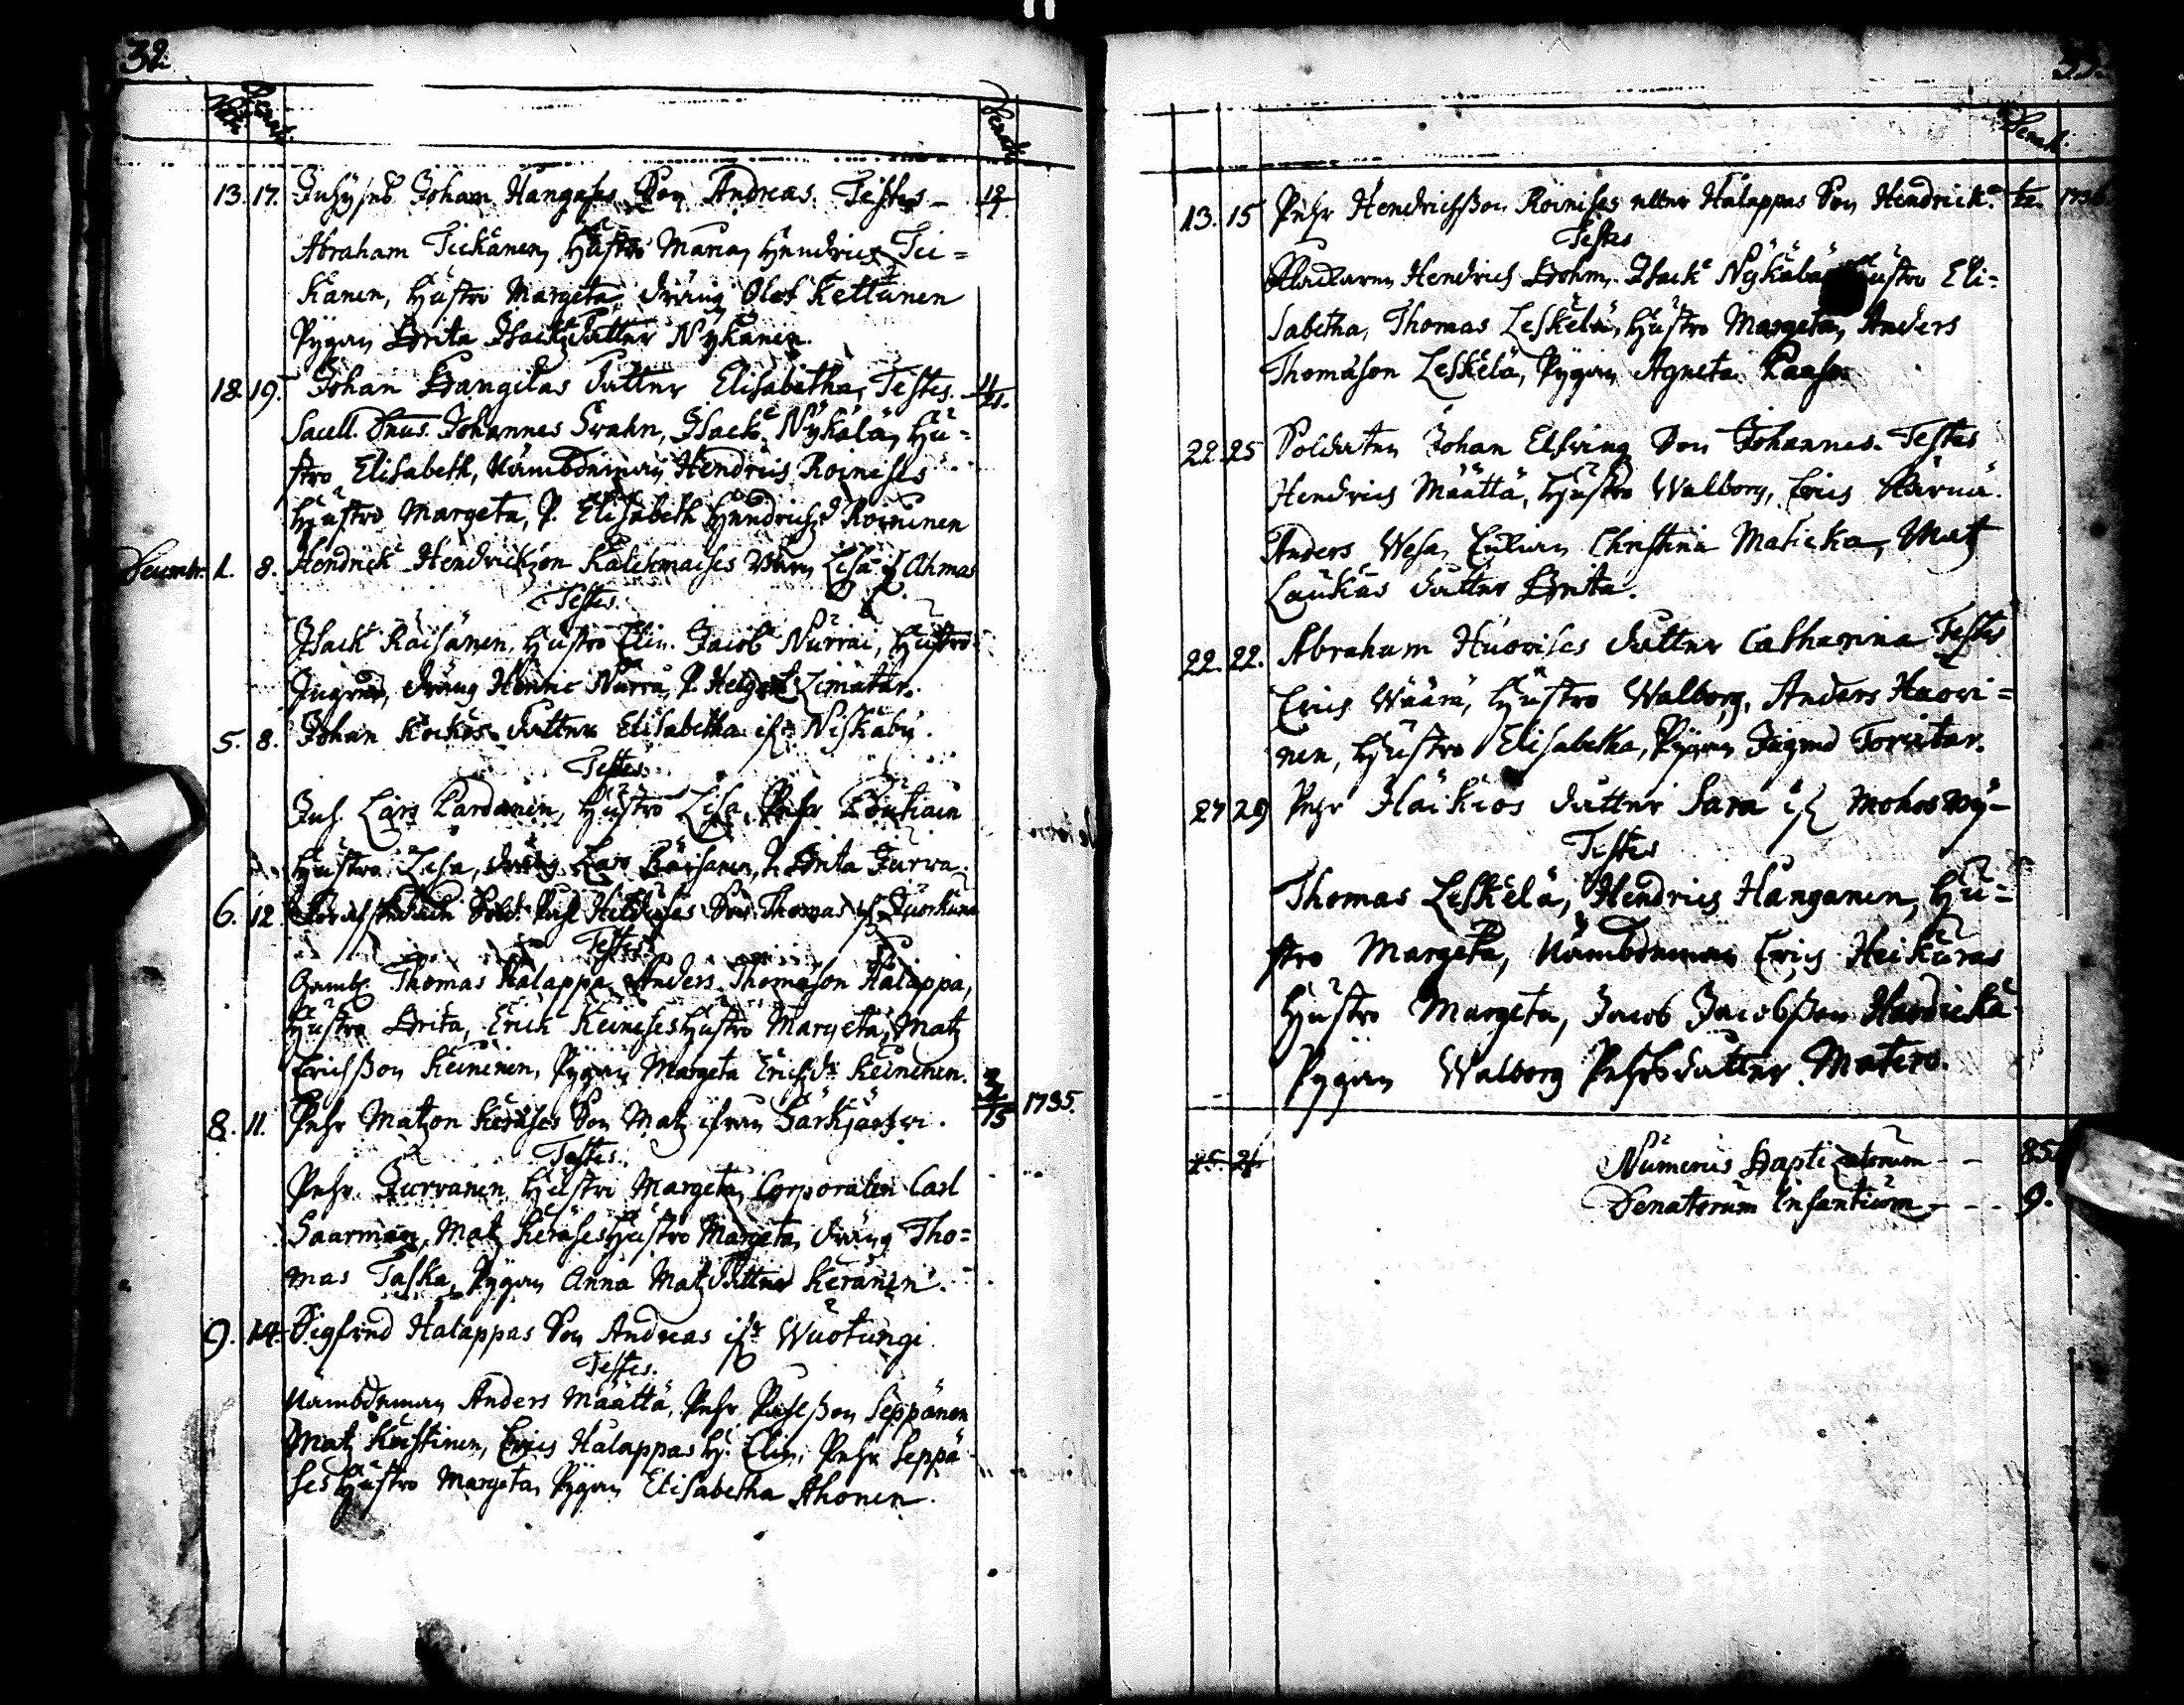 32.
Nati Renati Denati
13. 17. Inhyses Johan Hangases Son Andreas. Testes
Abraham Tickänen, Hustro Maria, Hendric Tic=
känen, Hustro Margeta, dräng Olof Kettunen
Pygan Brita Isacksdatter Nykänen.
18. 19. Johan Bangilas datter Elisabetha, Testes.
Sacell. Dnus. Johannes Svahn, Isack Nykälä, Hu=
stro Elisabeth, Nämbdeman Hendric Roinises
Hustro Margeta, P. Elisabeth Hendrichsd. Roininen
Decembr. 1. 8. Hendrich Hendrickzon Kalickmaises Barn Lisa if Ahmas
Testes.
Isack Räisänen, Hustro Elin. Jacob Nurrai, Hustro
Ingred, dräng Henric Nurra, P. Helga Limatar.
5. 8. Johan Kockos datter Elisabetha ifr. Niskaby.
Testes.
Inh. Lars Pardanen, Hustro Lisa, Pehr Pontiain
Hustro Lisa, dräng Lars Räisänen, P. Brita Jurva.
6. 12. Sold. Påhl Heickises Son Thomas if
Testes.
Gambl. Thomas Halappa, Anders Thomäson Halappa,
Hustro Brita, Erich Keineses Hustro Margeta, Matz
Erichsson Keinenen, Pygan Margeta Erichsdr. Keinenen.
8. 11. Pehr Matzon Keräses Son Matz ifrån Särkjärfvi. 15 1735.
Testes.
Pehr Jurvanen Hustro Margeta, Corporalen Carl
Saarman, Matz Keräses Hustro Margeta, dräng Tho=
mas Taska, Pygan Anna Matzdatter Keränen.
9. 14. Sigfred Halappas Son Andreas ifr. Wuotungi.
Testes.
Nämbdeman Anders Määttä, Pehr Påhlsson Seppänen
Matz Kuistinen, Erics Halappas H. Elin, Pehr Seppä
ses Hustro Margeta, Pygan Elisabetha Ahonen.
33.
Denati.
13. 15 Pehr Hendrichsson Roinises eller Halappas Son Hendrick. 1736.
Testes
Hendrich Bohm, Isack Nykälä Hustro Eli=
sabetha, Thomas Leskelä, Hustro Margeta, Anders
Thomason Leskelä, Pygan Agneta
22. 25 Soldaten Johan Elfving Son Johannes. Testes
Hendrics Määttä, Hustro Walborg, Erics Kärnä.
Anders Wesa, Enkian Christina Maticka, Matz
Laukias datter Brita.
22. 22. Abraham Huovises datter Catharina Testes
Erics Wäärä, Hustro Walborg, Anders Huovi=
nen, Hustro Elisabetha, Pygan Ingred Torvitar.
27 29 Pehr Häikiös datter Sara if Mohos Ny-
Testes
Thomas Leskelä, Hendrics Hanganen, Hu=
stro Margeta, Nämbdeman Erics Heikuras
Hustro Margeta, Jacob Jacobsson
Pygan Walborg Pehrsdatter Matero.
25. 26
Numerus Baptizatorum - - 85.
Denatorum Infantium - - - 9.